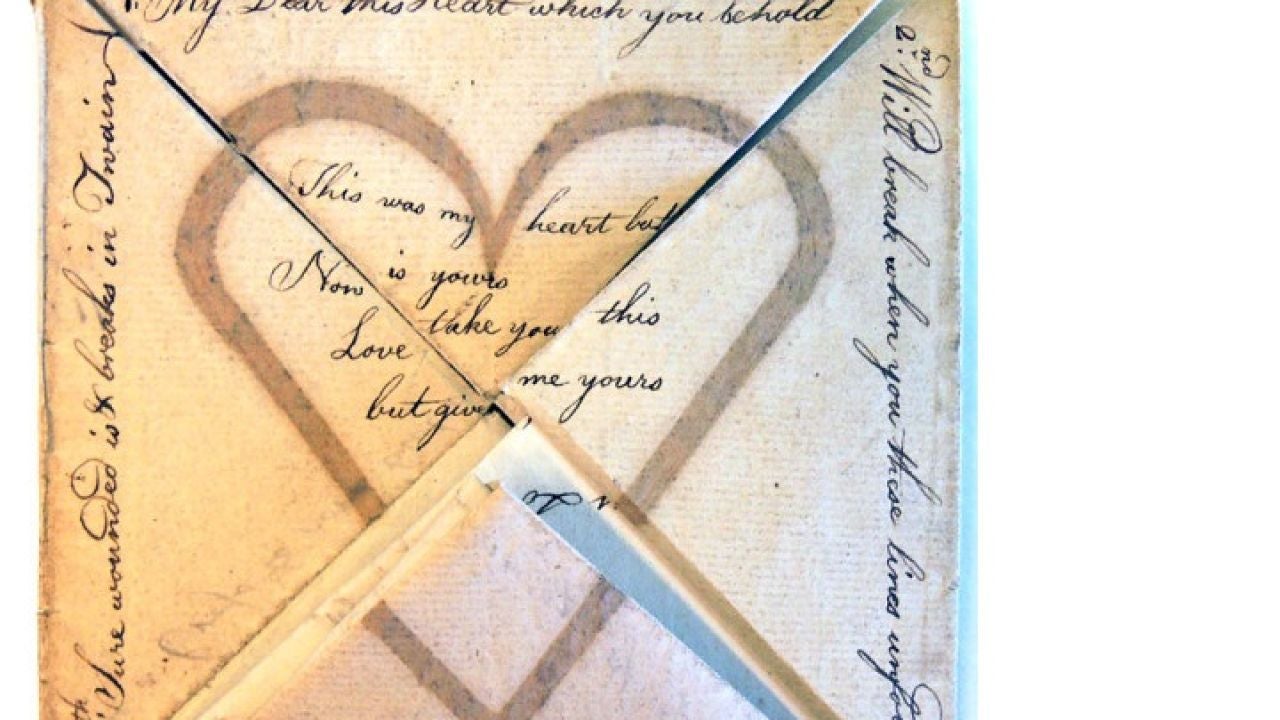 My Dear this Heart which you behold
2nd Will break when you these lines
This was my heart but
Now is yours
take you this
Love
me yours
but give
Sure wounded is & breaks in Twain